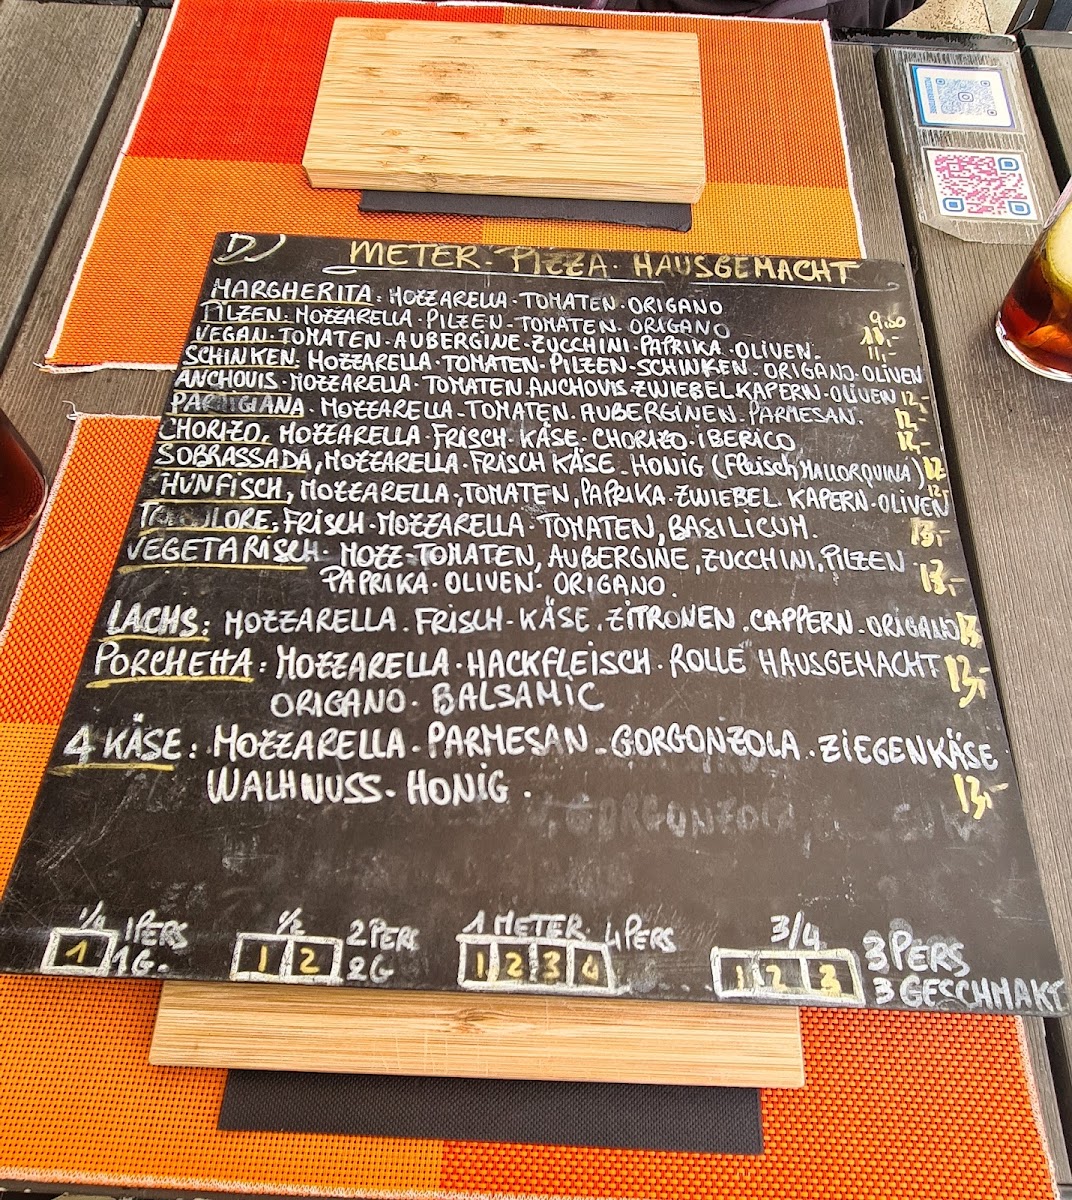 D)
METER-PIZZA. HAUSGEMACHT
MARGHERITA: MOZZARELLA-TOMATEN-ORIGANO
PILZEN: MOZZARELLA-PILZEN-TOMATEN. ORIGANO 9,50
VEGAN-TOMATEN-AUBERGINE-ZUCCHINI-PAPRIKA-OLIVEN. 10,-
SCHINKEN: MOZZARELLA-TOMATEN-PILZEN-SCHINKEN. ORIGANO-OLIVEN 11,-
ANCHOVIS-MOZZARELLA-TOMATEN.ANCHOVIS-ZWIEBEL KAPERN-OLIVEN 12,-
PARMIGIANA. MOZZARELLA-TOMATEN. AUBERGINEN. PARMESAN. 12,-
CHORIZO. MOZZARELLA-FRISCH-KÄSE-CHORIZO-IBERICO 12,-
SOBRASSADA, MOZZARELLA-FRISCH KÄSE-HONIG (Fleisch MALLORQUINA) 12
THUNFISCH, MOZZARELLA, TOMATEN, PAPRIKA-ZWIEBEL KAPERN-OLIVEN 12,-
FRISCH-MOZZARELLA-TOMATEN, BASILICUM. 13,-
VEGETARISCH-MOZZ-TOMATEN, AUBERGINE, ZUCCHINI, PILZEN
PAPRIKA-OLIVEN-ORIGANO. 13,-
LACHS: MOZZARELLA. FRISCH-KÄSE. ZITRONEN. CAPPERN-ORIGANO 13
PORCHETTA: MOZZARELLA-HACKFLEISCH-ROLLE HAUSGEMACHT
ORIGANO. BALSAMIC 13,-
4 KÄSE: MOZZARELLA. PARMESAN-GORGONZOLA. ZIEGENKÄSE
WALHNUSS. HONIG. 13,-
GORGONZOLA,
1/4 1PERS 1/2 2PERS 1 METER 4PERS 3/4 3PERS
1 1G. 1 2 2G 1 2 3 4 1 2 3 3 GESCHMAKT